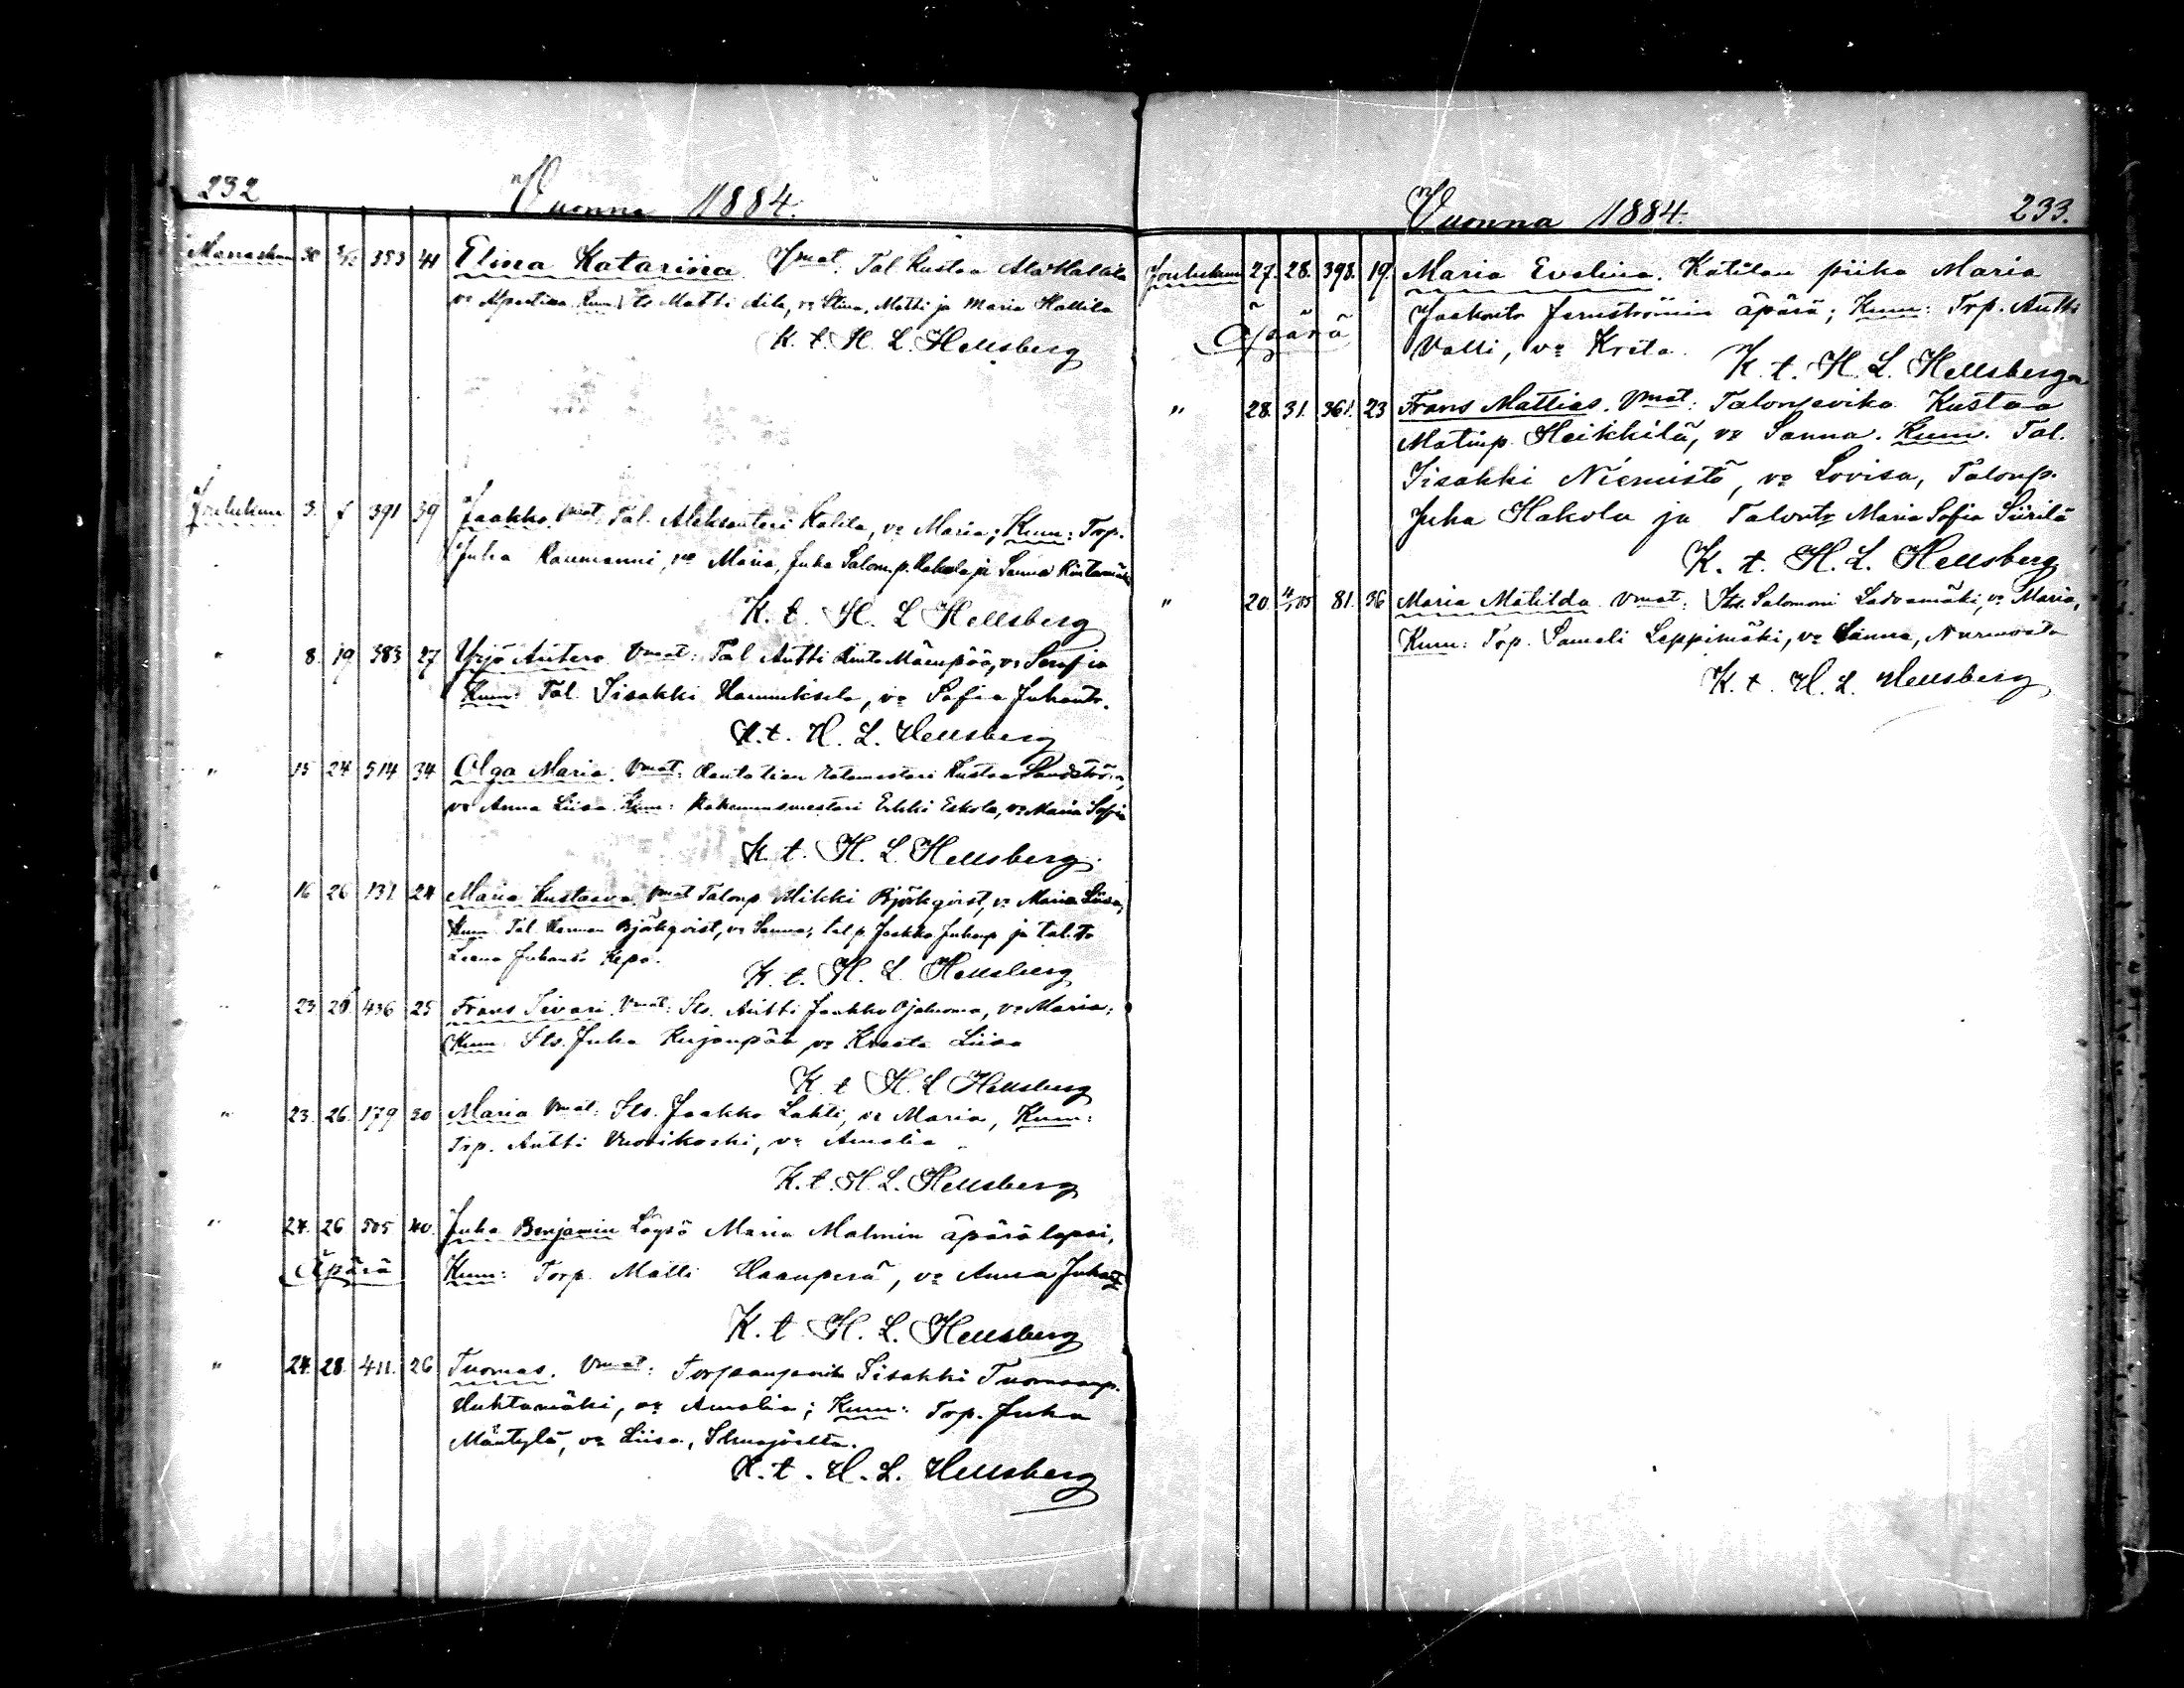 232
Vuonna 1884.
Marraskuu 30 3/12 353 41 Elina Katarina Vmat: Tal Kustaa AlaHallila
vo Kum: Matti Aila, vo Stina, Matti ja Maria Hallila
K. t. H. L. Hellsberg
Joulukuu 3. 391 39 Jaakko Vmat: Tal. Aleksanteri Katila, vo Maria; Kum: Trp.
Juha Raumanni, vo Maria, Juha Salom.p. Hakola ja Sanna Rintamäki
K. t. H. L Hellsberg
" 8. 19 383 27 Yrjö Antero Vmat: Tal Antti RintaMäenpää, vo Serafia
Kum: Tal. Iisakki Hannuksela, vo Sofia Juhontr.
K. t. H. L. Hellsberg
" 15 24 514 34 Olga Maria. Vmat: Rautatien ratamestari Kustaa Sandström,
vo Anna Liisa Kum: Rakennusmestari Erkki Eskola, vo Maria Sofia
K t. H. L. Hellsberg.
" 16 26 131 24 Maria Kustaava Vmat Talonp Mikki Björkqvist, vo Maria Liisa,
Kum Tal. Herman Björkqvist, vo Sanna; tal.p. Jaakko Juhonp ja tal.tr
Leena Juhontr Repo.
K. t. H. L. Hellsberg
" 23 28 436 25 Frans Iivari Vmat: Its. Antti Jaakko Ojaluoma, vo Maria;
Kum Its. Juha Kujanpää vo Kreeta Liisa
K t H. L Hellsberg
" 23. 26. 179 30 Maria Vmat: Its. Jaakko Lahti, vo Maria, Kum:
Trp. Antti Vuorikoski, vo Amalia
K. t. H. L. Hellsberg
" 24. 26 505 40. Juha Benjamin Löysä Maria Malmin äpärä lapsi,
Äpärä Kum: Torp. Matti Haanperä, vo Anna Juhontr
K. t H. L. Hellsberg
" 24. 28. 411. 26 Tuomas. Vmat: Torpanpoika Iisakki Tuomaanp.
Huhtamäki, vo Amalia; Kum: Trp. Juha
Mäntylä, vo Liisa, Ilmajoelta.
K. t. H. L. Hellsberg
Vuonna 1884. 233.
Joulukuu 27. 28. 398. 19. Maria Evelina. Katilan piika Maria
Jaakontr Fernströmin äpärä; Kum: Trp. Antti
Äpärä Valli, vo Kreta.
K. t. H. L. Hellsberg
" 28. 31. 361. 23 Frans Mattias. Vmat: Talonpoika Kustaa
Matinp. Heikkilä, vo Sanna. Kum. Tal.
Iisakki Niemistö, vo Lovisa, Talonp.
Juha Hakola ja Talontr Maria Sofia Siirilä
K. t. H. L. Hellsberg
" 20. 81. 36 Maria Matilda Vmat: Its. Salomoni Latvamäki, vo Maria,
Kum: Trp. Sameli Leppimäki, vo Sanna, Nurmosta
K. t. H. L. Hellsberg